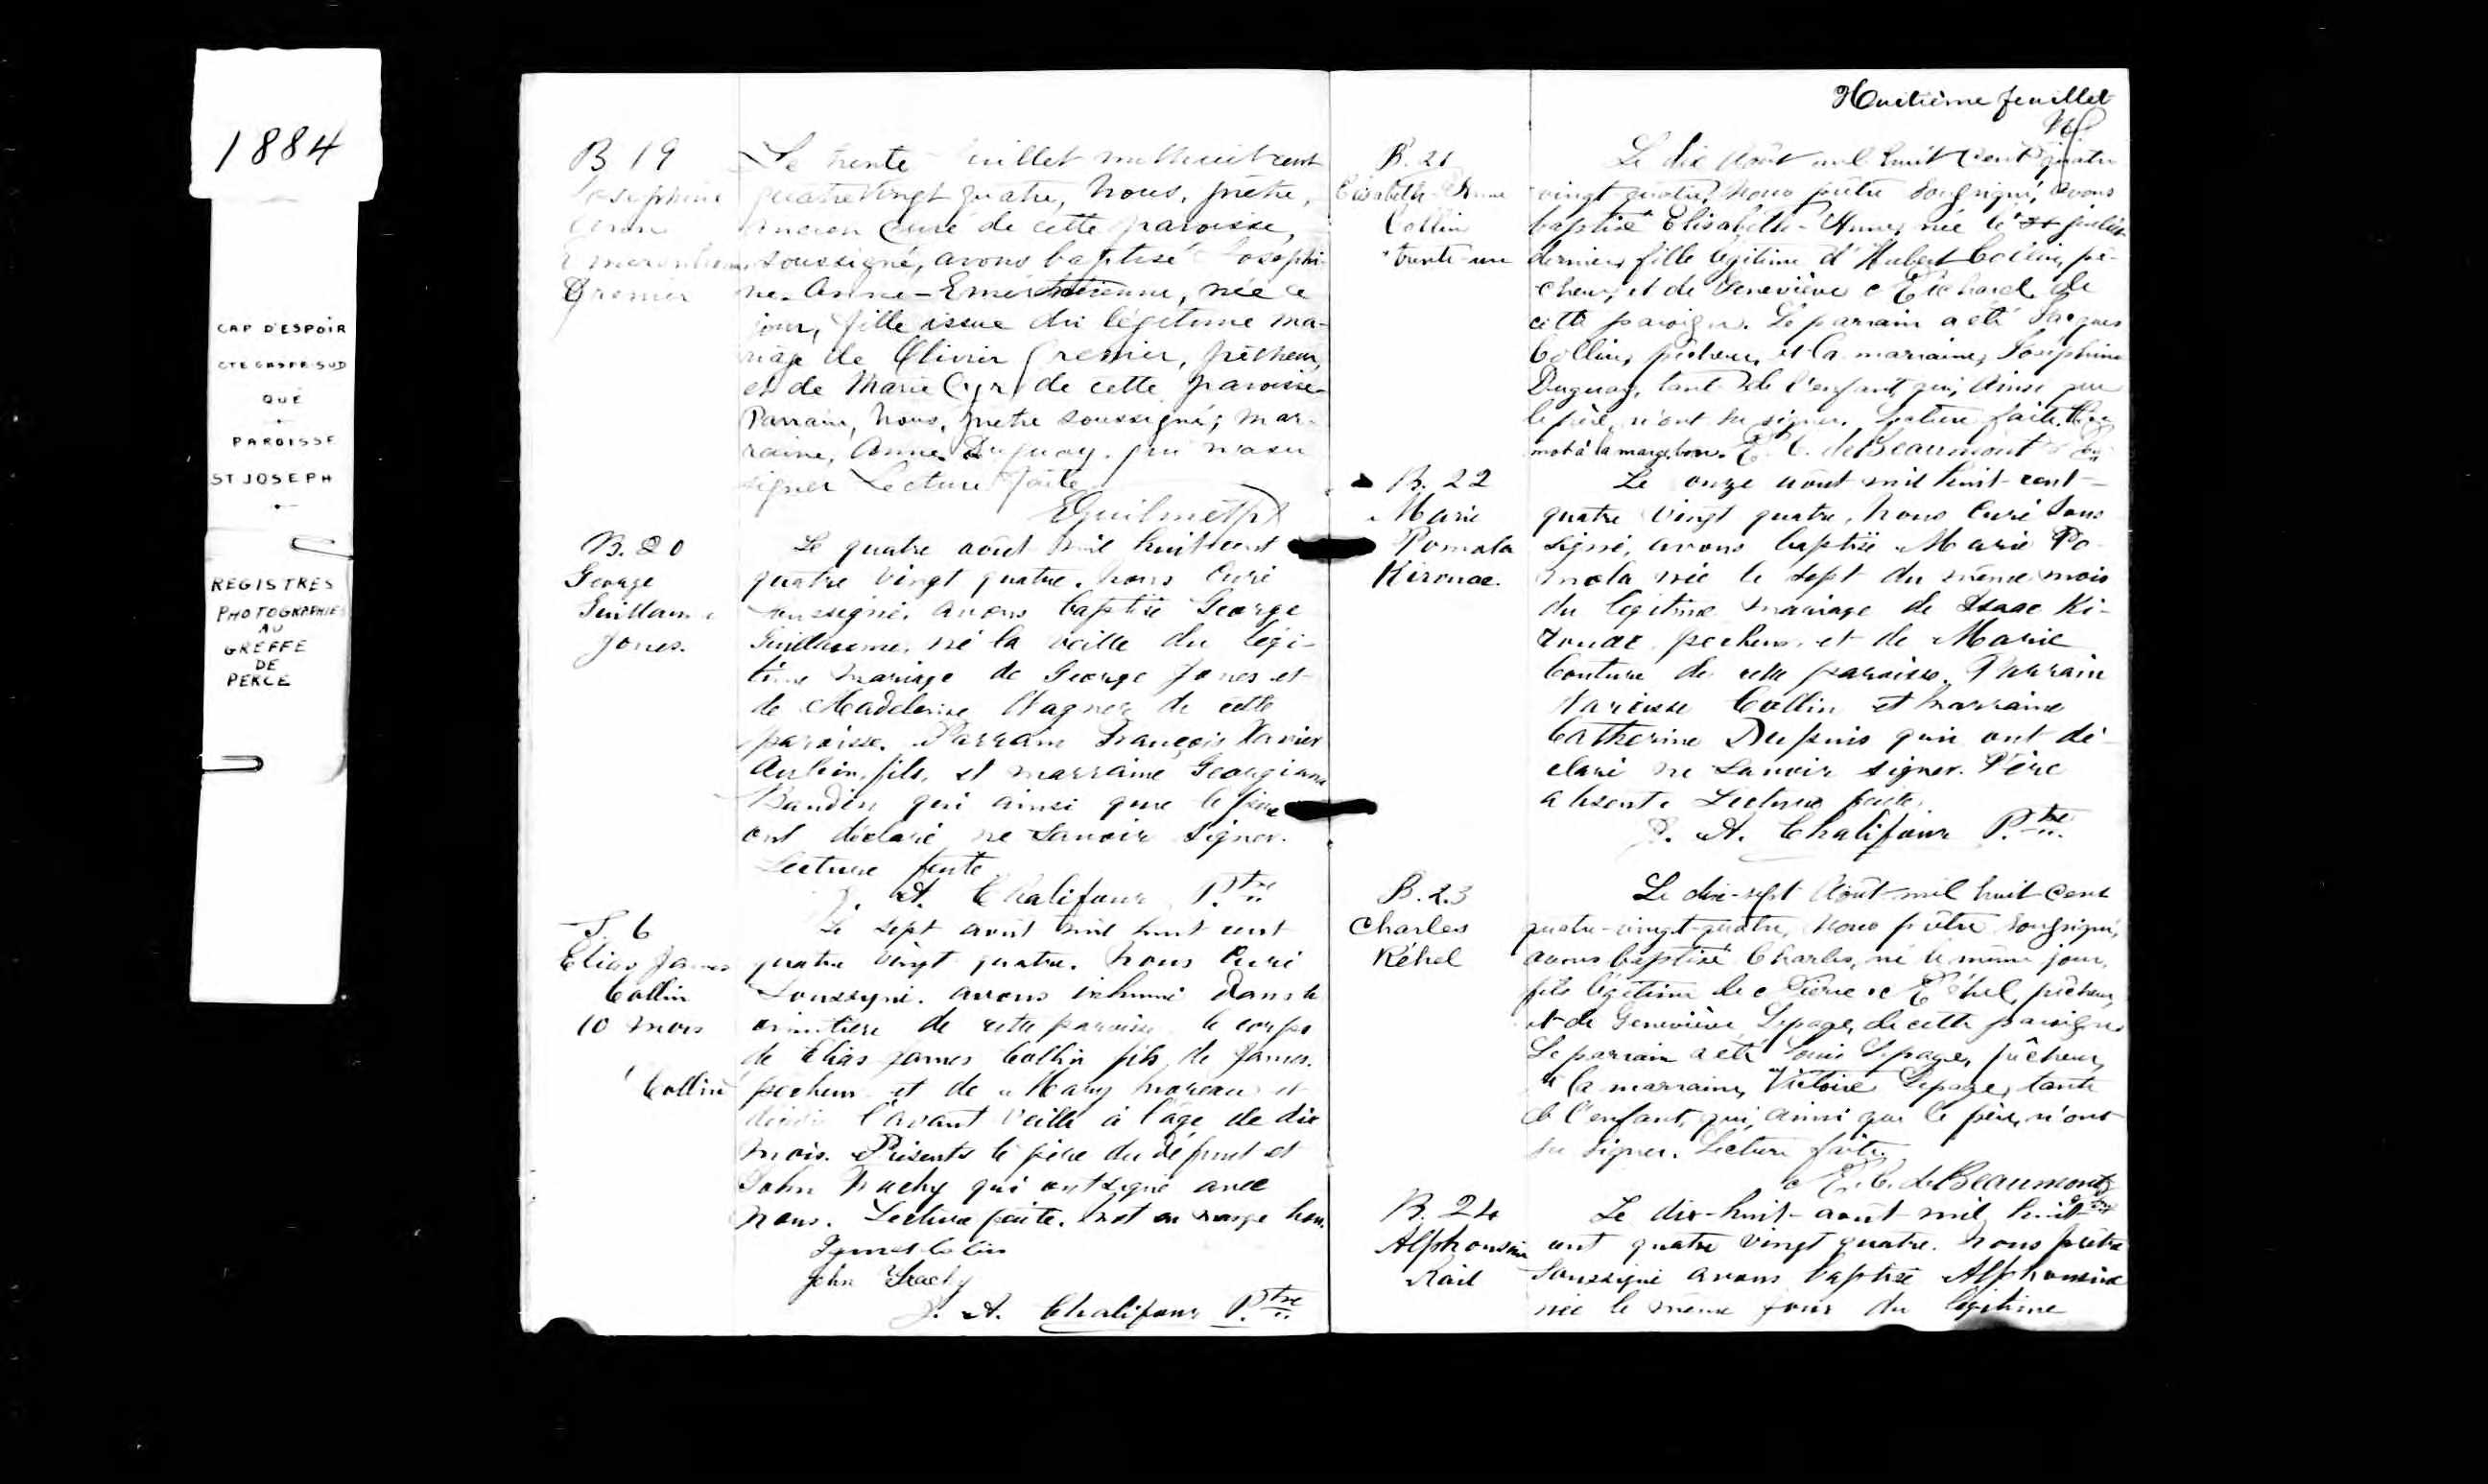 1884
CAP D'ESPOIR
CTE GASPE SUD
QUÉ
PAROISSE
ST JOSEPH
REGISTRES
PHOTOGRAPHIES
AU
GREFFE
DE
PERCÉ
B 19
Josephine
Anne
Gremier
Le trente juillet mil huit cent
quatre vingt quatre, nous, prêtre,
ancien curé de cette paroisse,
soussigné, avons baptisé Josephi-
ne-Anne-Emerentienne, née ce
jour, fille issue du légitime ma-
riage de Olivier Gremier, pêcheur,
et de Marie Cyr de cette paroisse
Parrain, nous, prêtre soussigné; mar-
raine, Anne Duguay, qui n'a su
signer Lecture faite
B. 20
George
Guillaume
Jones.
Le quatre août mil huit cent
quatre vingt quatre. nous Curé
soussigné. avons baptisé George
Guillaume, né la veille du légi-
time mariage de George Jones et
de Madeleine Wagner de cette
paroisse. Parrain François Xavier
fils, et marraine Georgiana
Baudin qui ainsi que le père
ont déclaré ne savoir signer.
Lecture faite
J. A. Chalifour Ptre
S. 6
Elias James
Collin
10 mois
Collin
Le sept août mil huit cent
quatre vingt quatre. nous Curé
soussigné. avons inhumé dans le
cimetière de cette paroisse le corps
de Elias James Collin fils de James.
pecheur et de Mary moreau et
l'avant veille à l'âge de dix
mois. Présents le père du défunt et
John Trachy qui ont signé avec
nous. Lecture faite. mot en marge bon.
James Colin
John Trachy
J. A. Chalifour Ptre
Huitième feuillet
B. 21
Elisabeth-Anne
Collin
trente-un
Le dix Août mil huit cent quatre
vingt-quatre, nous prêtre soussigné, avons
baptisé Elisabeth-Anne, née le juillet
dernier, fille légitime d'Hubert Collin, pê-
cheur, et de Geneviève Richard, de
cette paroisse. Le parrain a été Jacques
Collin, pêcheur, et la marraine, Josephine
Duguay, tante de l'enfant, qui, ainsi que
le père, n'ont su signer. Lecture faite.
mot à la marge bon. E. C. de Beaumont
B. 22
Marie
Pomela
Kirouac.
Le onze août mil huit-cent-
quatre vingt quatre, nous Curé sous
signé, avons baptisé Marie Po
mela née le sept du même mois
du légitime mariage de Isaac Ki-
rouac pecheur, et de Marie
Couture de cette paroisse. Parrain
Narcisse Collin et marraine
Catherine Dupuis qui ont dé-
claré ne savoir signer. Père
absent. Lecture faite.
J. A. Chalifour Ptre
B. 23
Charles
Réhel
Le dix-sept Août mil huit cent
quatre-vingt-quatre, nous prêtre soussigné,
avons baptisé Charles, né le même jour,
fils légitime de Pierre Réhel, pêcheur,
et de Geneviève Lepage, de cette paroisse
Le parrain a été Louis Lepage, pêcheur,
et la marraine, Victoire Lepage, tante
de l'enfant, qui, ainsi que le père, n'ont
su signer. Lecture faite.
E. C. de Beaumont
B. 24
Alphonsine
Rail
Le dix-huit août mil huit
cent quatre vingt quatre. nous prêtre
soussigné avons baptisé Alphonsine
née le même jour du légitime